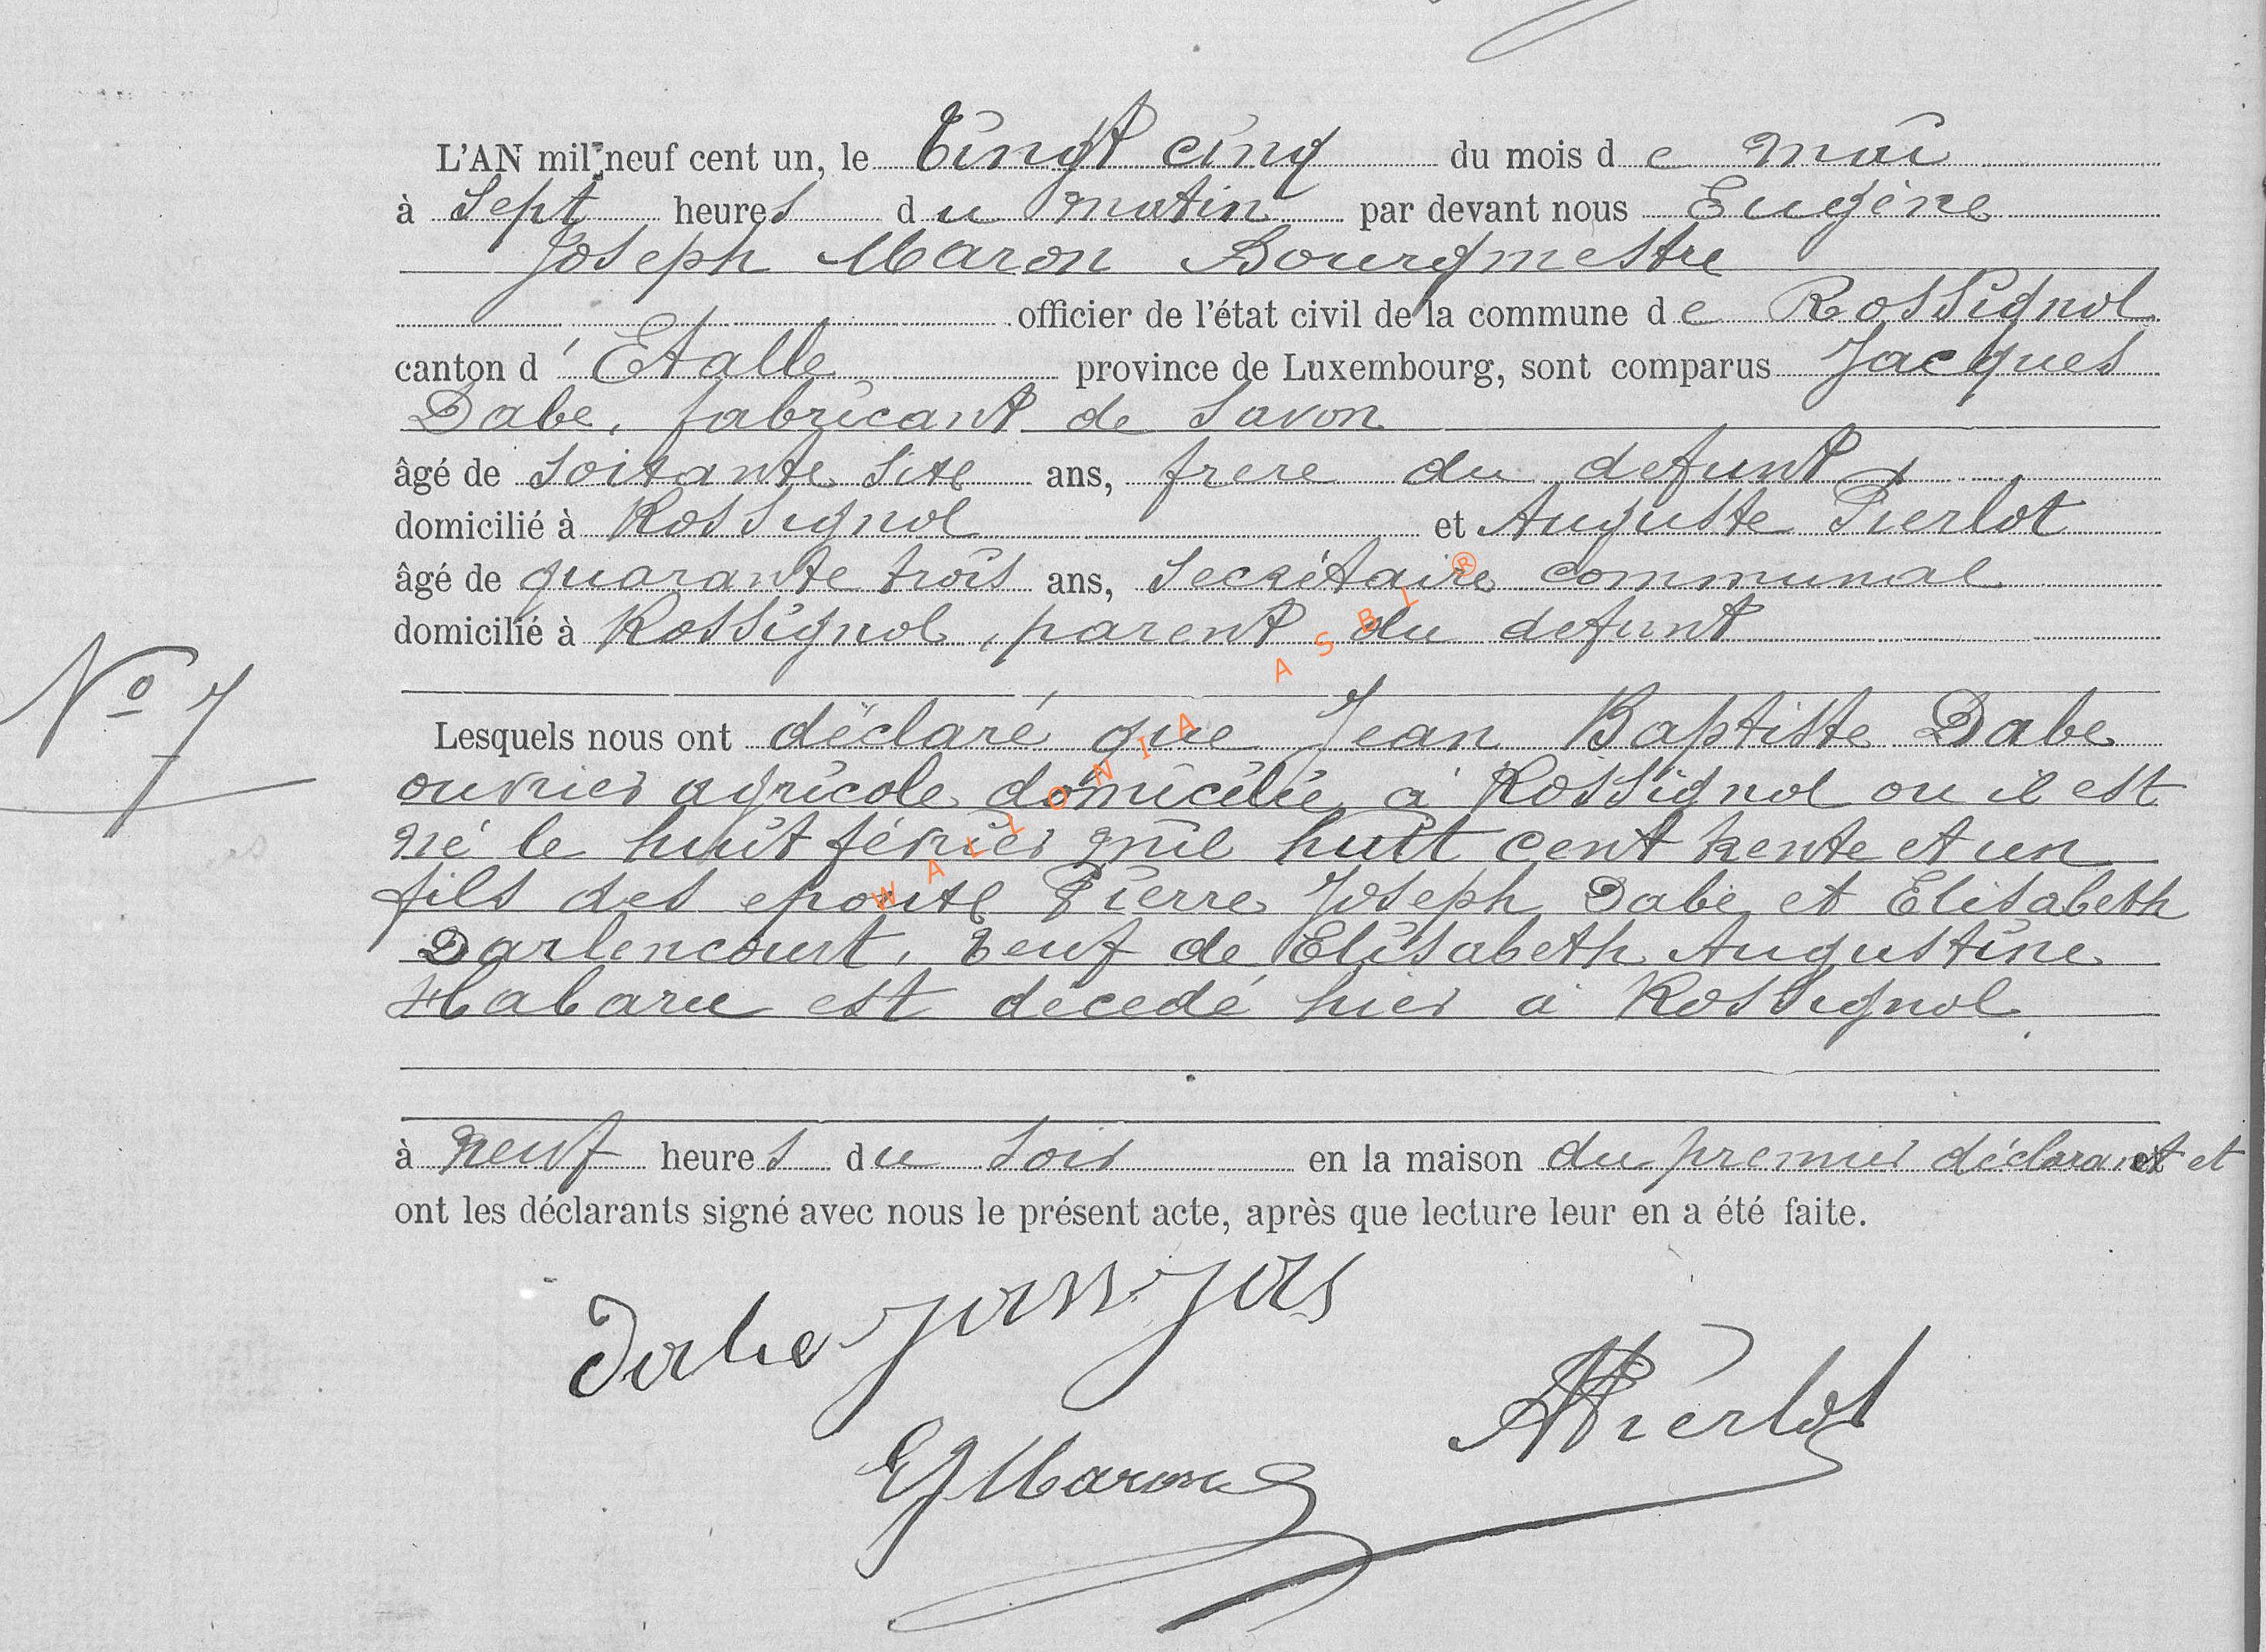 L'AN mil neuf cent un, le Vingt cinq du mois de mai
à Sept heures du matin par devant nous Eugène
Joseph Maron Bourgmestre
officier de l'état civil de la commune de Rossignol
canton d'Etalle province de Luxembourg, sont comparus Jacques
Dabe, fabricant de Savon
âgé de soixante six ans, frere du defunt
domicilié à Rossignol et Auguste Pierlot
âgé de quarante trois ans, Secrétaire communal
domicilié à Rossignol, parent du defunt
No 7
Lesquels nous ont déclaré que Jean Baptiste Dabe
ouvrier agricole domicilié à Rossignol ou il est
né le huit février mil huit cent trente et un
fils des epoux Pierre Joseph Dabe et Elisabeth
Darlencourt, Veuf de Elisabeth Augustine
Habaru est décedé hier à Rossignol
à neuf heures du soir en la maison du premier déclarant et
ont les déclarants signé avec nous le présent acte, après que lecture leur en a été faite.
Dabe
APierlot
EJMaron
WALLONIA ASBL ®